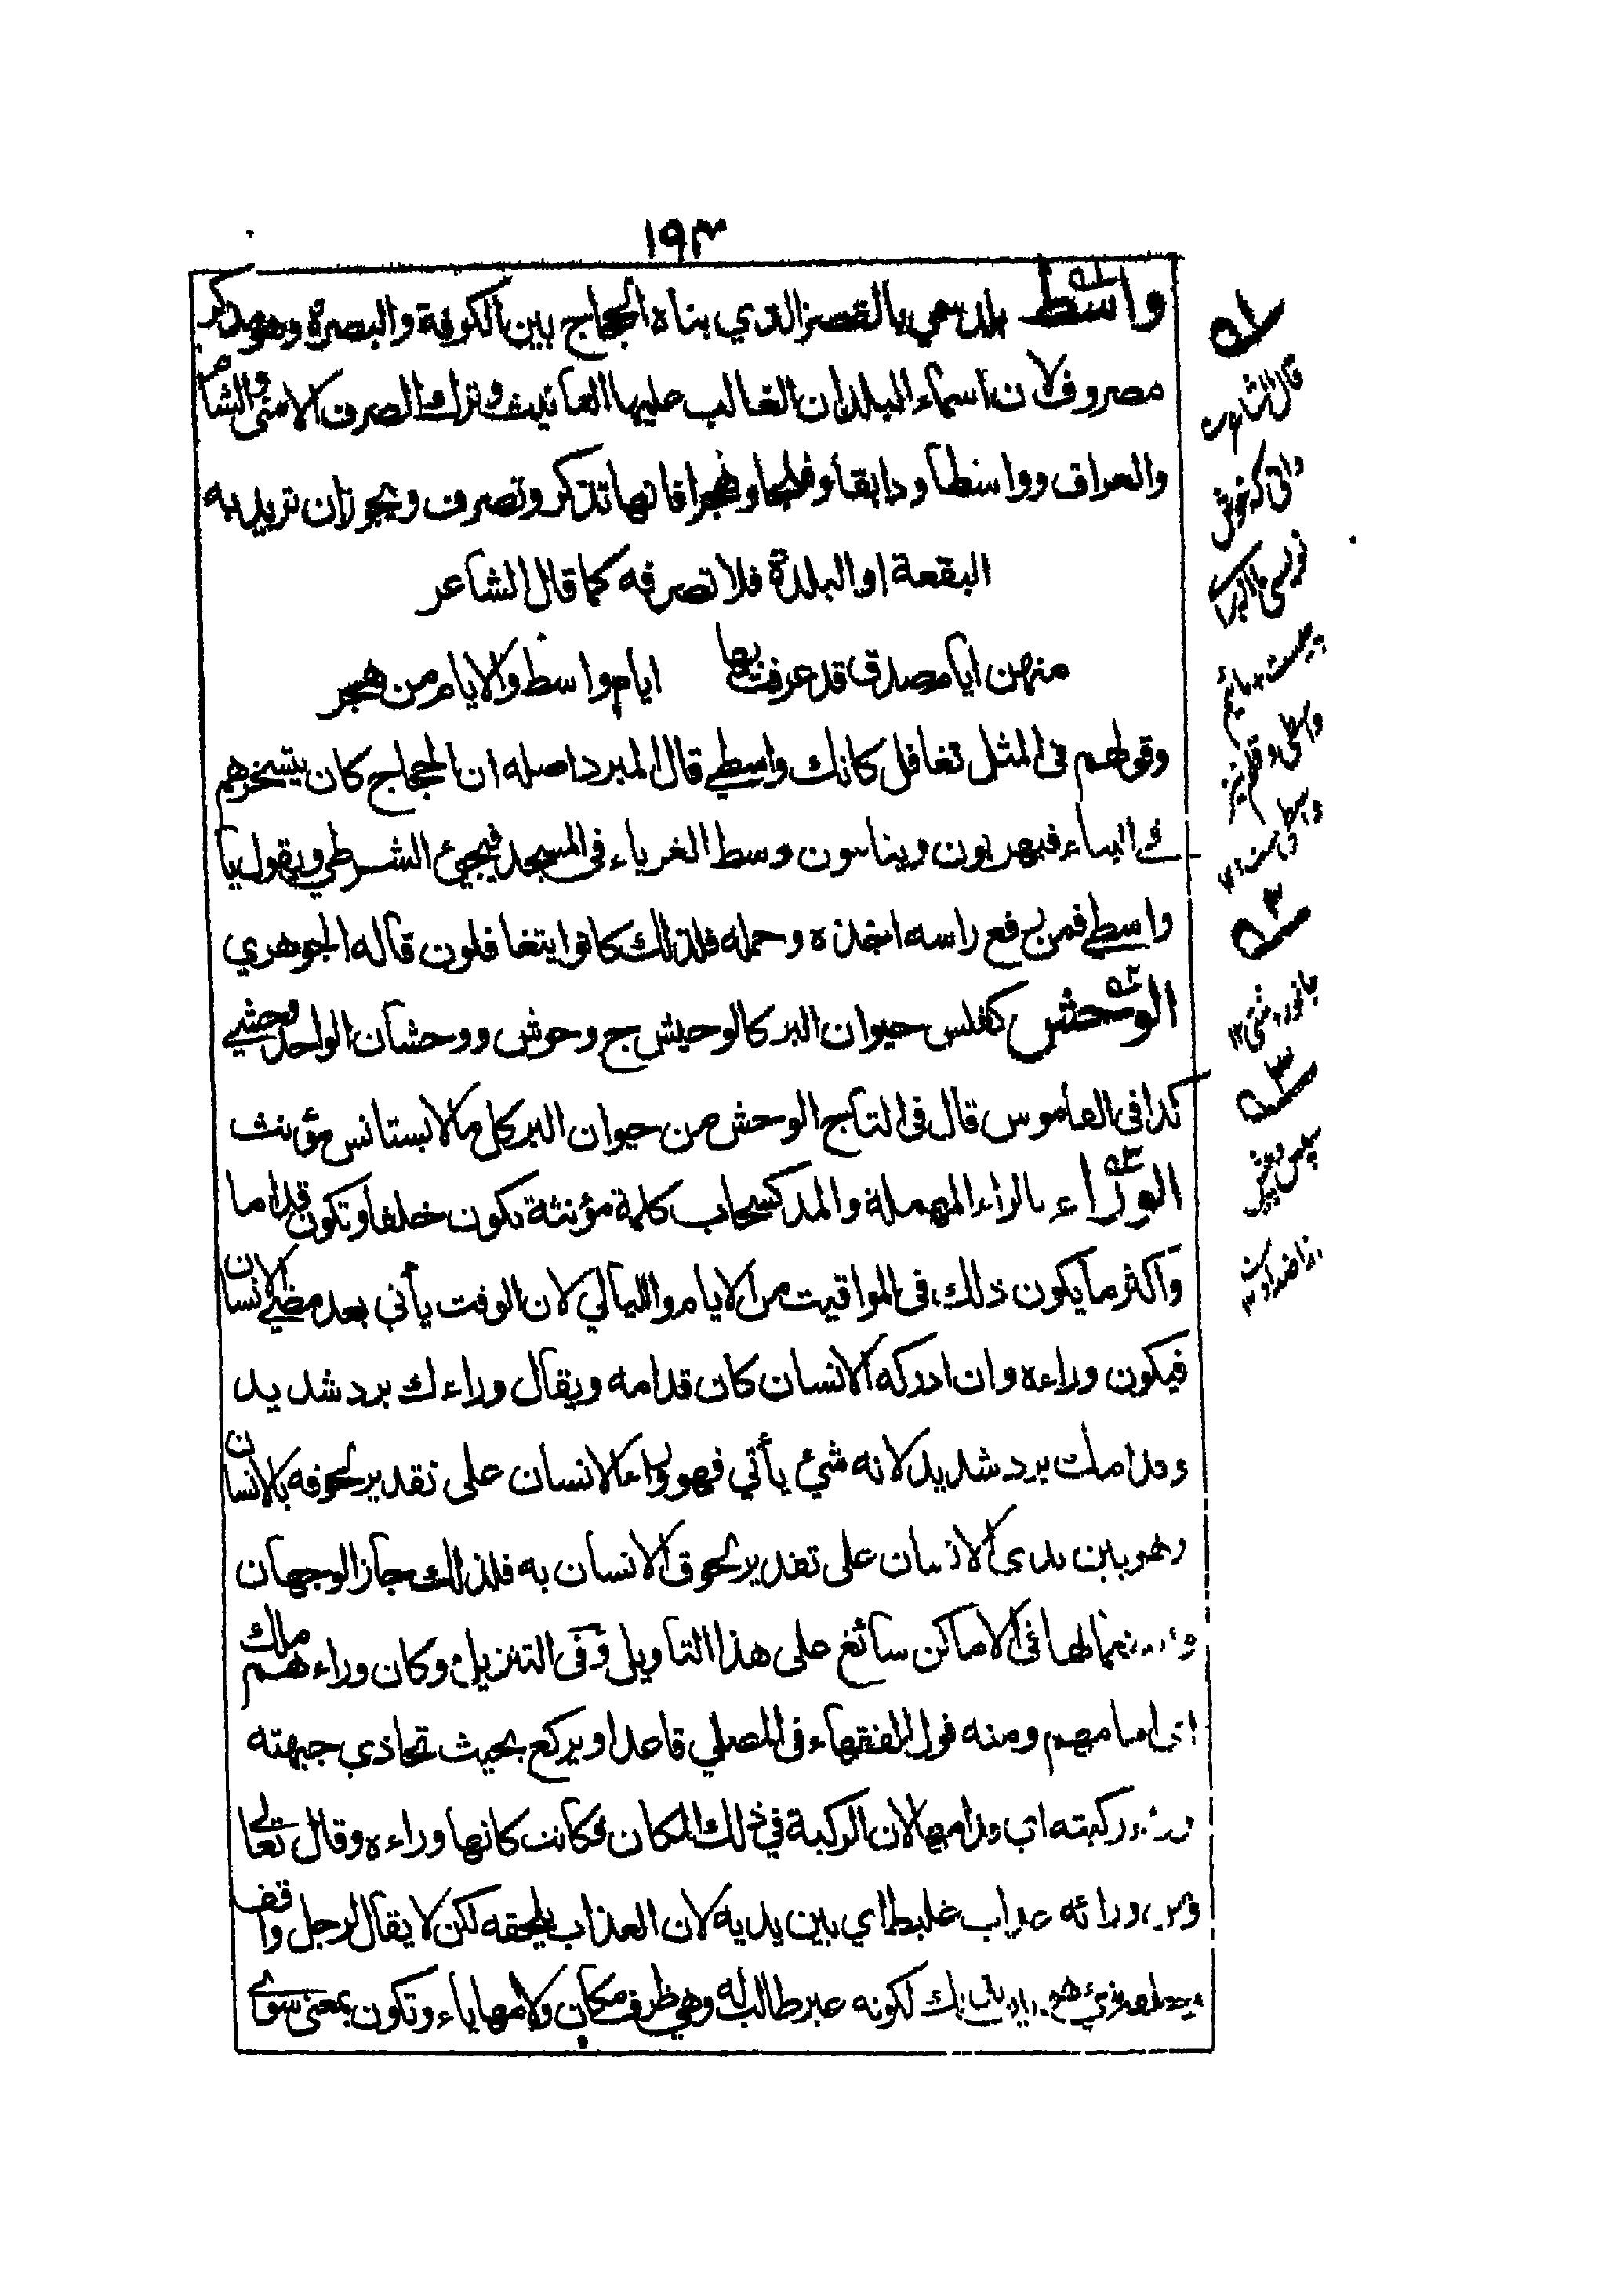 ١٩٣
واسط بلد سمي بالقصر الذي بناه الحجاج بين الكوفة والبصرة وهو مذكر
مصروف لان اسماء البلدان الغالب عليها التانيث وترك الصرف الا منى والشام
والعراق وواسطا ودابقا وفلجا وهجرا فانها تذكر وتصرف ويجوز ان تريد به
البقعة او البلدة فلا تصرفه كما قال الشاعر
منهن ايام صدق قد عرفت بها ايام واسط والايام من هجر
وقولهم فى المثل تغافل كانك واسطي قال المبرد اصله ان الحجاج كان يتسخرهم
في البناء فيهربون وينامون وسط الغرباء فى المسجد فيجيئ الشرطي ويقول يا
واسطي فمن رفع راسه اخذه وحمله فلذلك كانوا يتغافلون قاله الجوهري
الوحش كفلس حيوان البر كالوحيش ج وحوش ووحشان الواحد وحشي
كذا فى القاموس قال فى التاج الوحش من حيوان البر كل ما لا يستانس مؤنث
الوراء بالراء المهملة والمد كسحاب كلمة مؤنثة تكون خلفا وتكون قداما
واكثر ما يكون ذلك فى المواقيت من الايام والليالي لان الوقت يأتي بعد مضي الانسان
فيكون وراءه وان ادركه الانسان كان قدامه ويقال وراءك برد شديد
وقدامك برد شديد لانه شئ يأتي فهو وراء الانسان على تقدير لحوقه بالانسان
وهو بين يدى الانسان على تقدير لحوق الانسان به فلذلك جاز الوجهان
واستعمالها فى الاماكن سائغ على هذا التاويل وفى التنزيل وكان وراءهم ملك
اى امامهم ومنه قول الفقهاء فى المصلي قاعدا ويركع بحيث تحاذي جبهته
وراء ركبته اي قدامها لان الركبة في ذلك المكان فكانت كانها وراءه وقال تعالى
ومن ورائه عذاب غليظ اي بين يديه لان العذاب يلحقه لكن لا يقال لرجل واقف
لكونه غير طالب له وهي ظرف مكان ولامها ياء وتكون بمعنى سوى
٥١
٥٢
جانور
٥٣